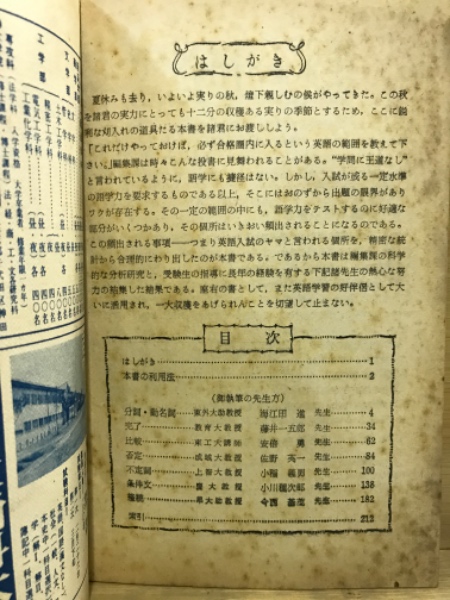 はしがき
夏休みも去り，いよいよ実りの秋，燈下親しむの候がやってきた。この秋
を諸君の実力にとっても十二分の収穫ある実りの季節とするため，ここに鋭
利な刈入れの道具たる本書を諸君にお渡ししよう。
「これだけやっておけば，必ず合格圏内に入るという英語の範囲を教えて下
さい」編集課は時々こんな投書に見舞われることがある。“学問に王道なし”
と言われているように，語学にも捷径はない。しかし，入試が或る一定水準
の語学力を要求するものである以上，そこにはおのずから出題の限界があり
ワクが存在する。その一定の範囲の中にも，語学力をテストするのに好適な
部分がいくつかあり，その個所はいきおい頻出されることになるのである。
この頻出される事項――つまり英語入試のヤマと言われる個所を，精密な統
計から合理的にわり出したのが本書である。であるから本書は編集課の科学
的な分析研究と，受験生の指導に長年の経験を有する下記諸先生の熱心な努
力の結集した結果である。座右の書として，また英語学習の好伴侶として大
いに活用され，一大収穫をあげられんことを切望して止まない。
目次
はしがき 1
本書の利用法 2
(御執筆の先生方)
分詞・動名詞 東外大助教授 海江田 進 先生 4
完了 教育大教授 藤井一五郎 先生 34
比較 東工大講師 安倍 勇 先生 62
否定 成城大教授 佐野 英一 先生 84
不定詞 上智大教授 小稲 義男 先生 100
条件文 農大教授 小川 先生 138
早大助教授 今西 基茂 先生 182
索引 212
工学部
電気工学科
工業化学科